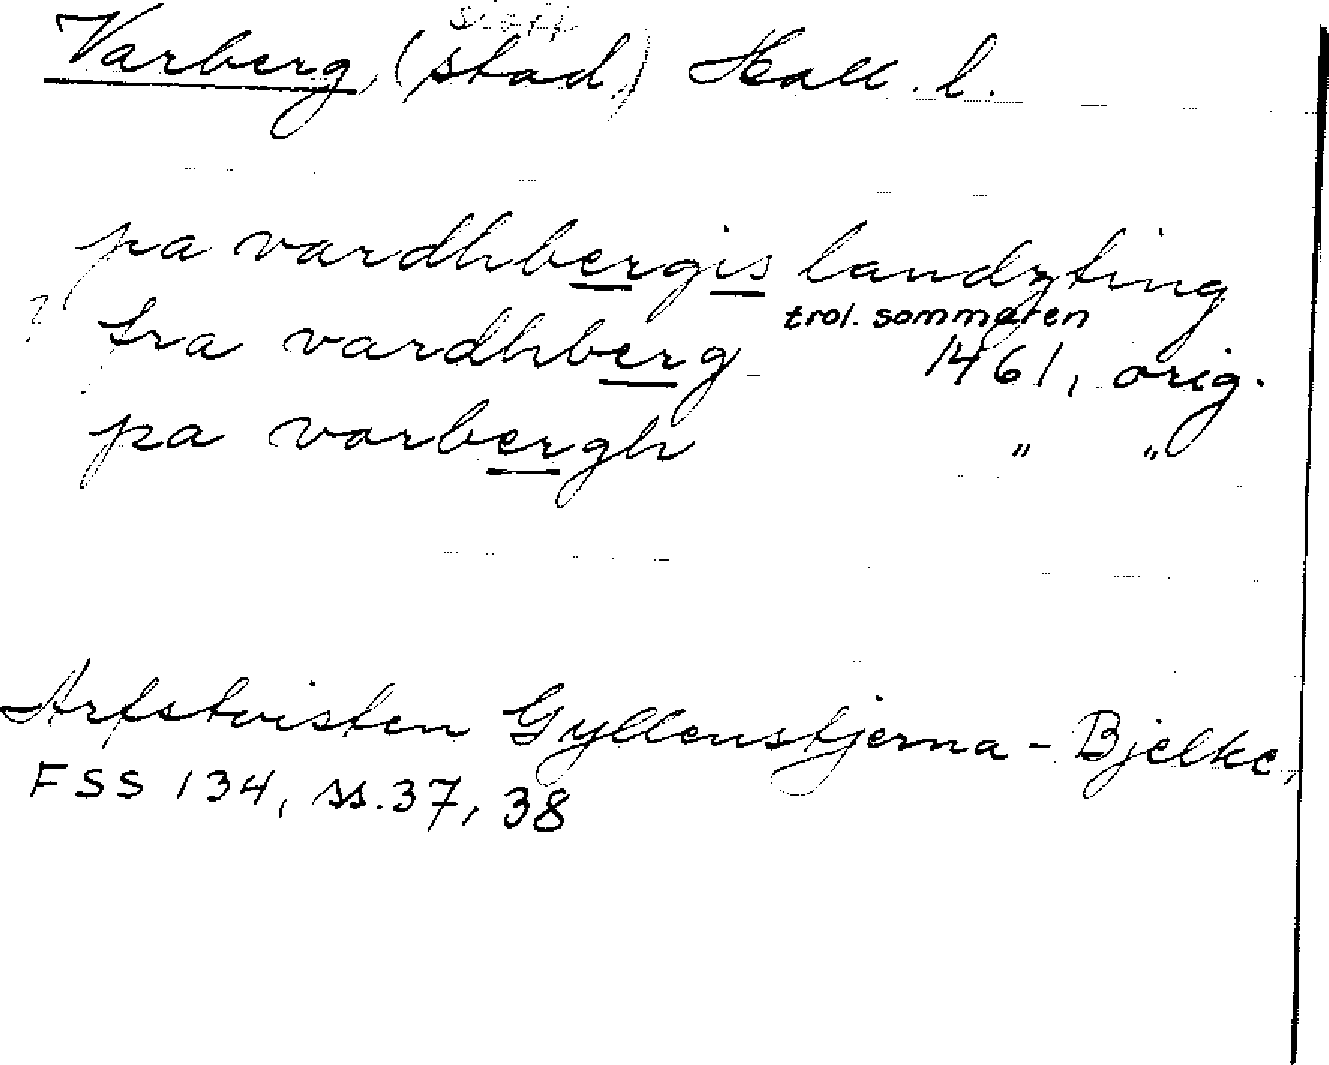 Slott
Varberg, (stad.) Hall. l.
pa vardhbergis landzting
trol. sommaren
? fra vardhberg 1461, orig.
pa varbergh " "
Arfstvisten Gyllenstjerna - Bjelke,
FSS 134, ss. 37, 38